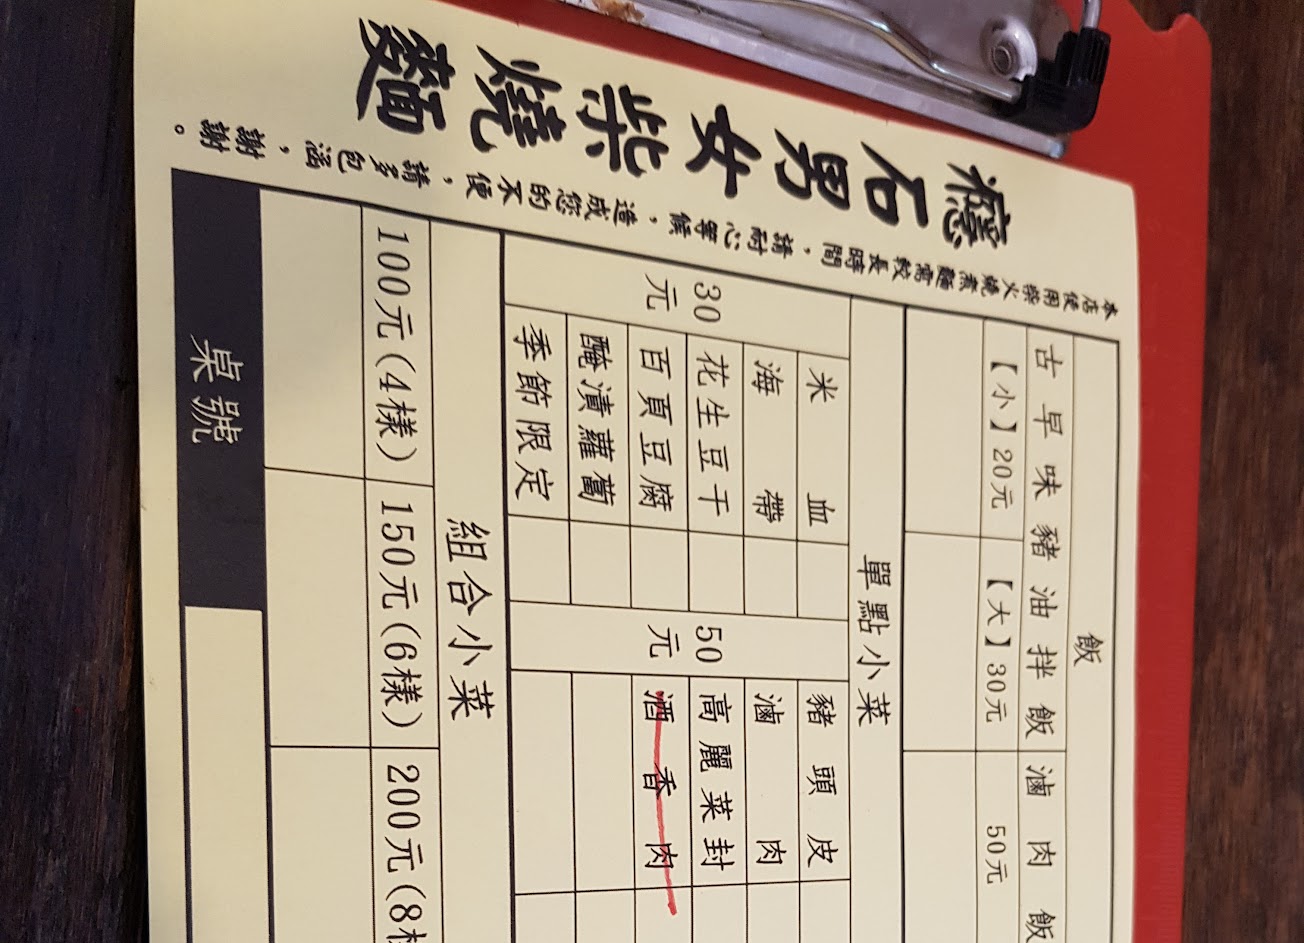 癮石男女柴燒麵
本店使用柴火燒煮麵需較長時間，請耐心等候，造成您的不便，請多包涵，謝謝。
飯
古早味豬油拌飯 滷肉飯
【小】20元 【大】30元 50元
單點小菜
30元 50元
米血 豬頭皮
海帶 滷肉
花生豆干 高麗菜封
百頁豆腐 酒香肉
醃漬蘿蔔
季節限定
組合小菜
100元(4樣) 150元(6樣) 200元(8樣
桌號